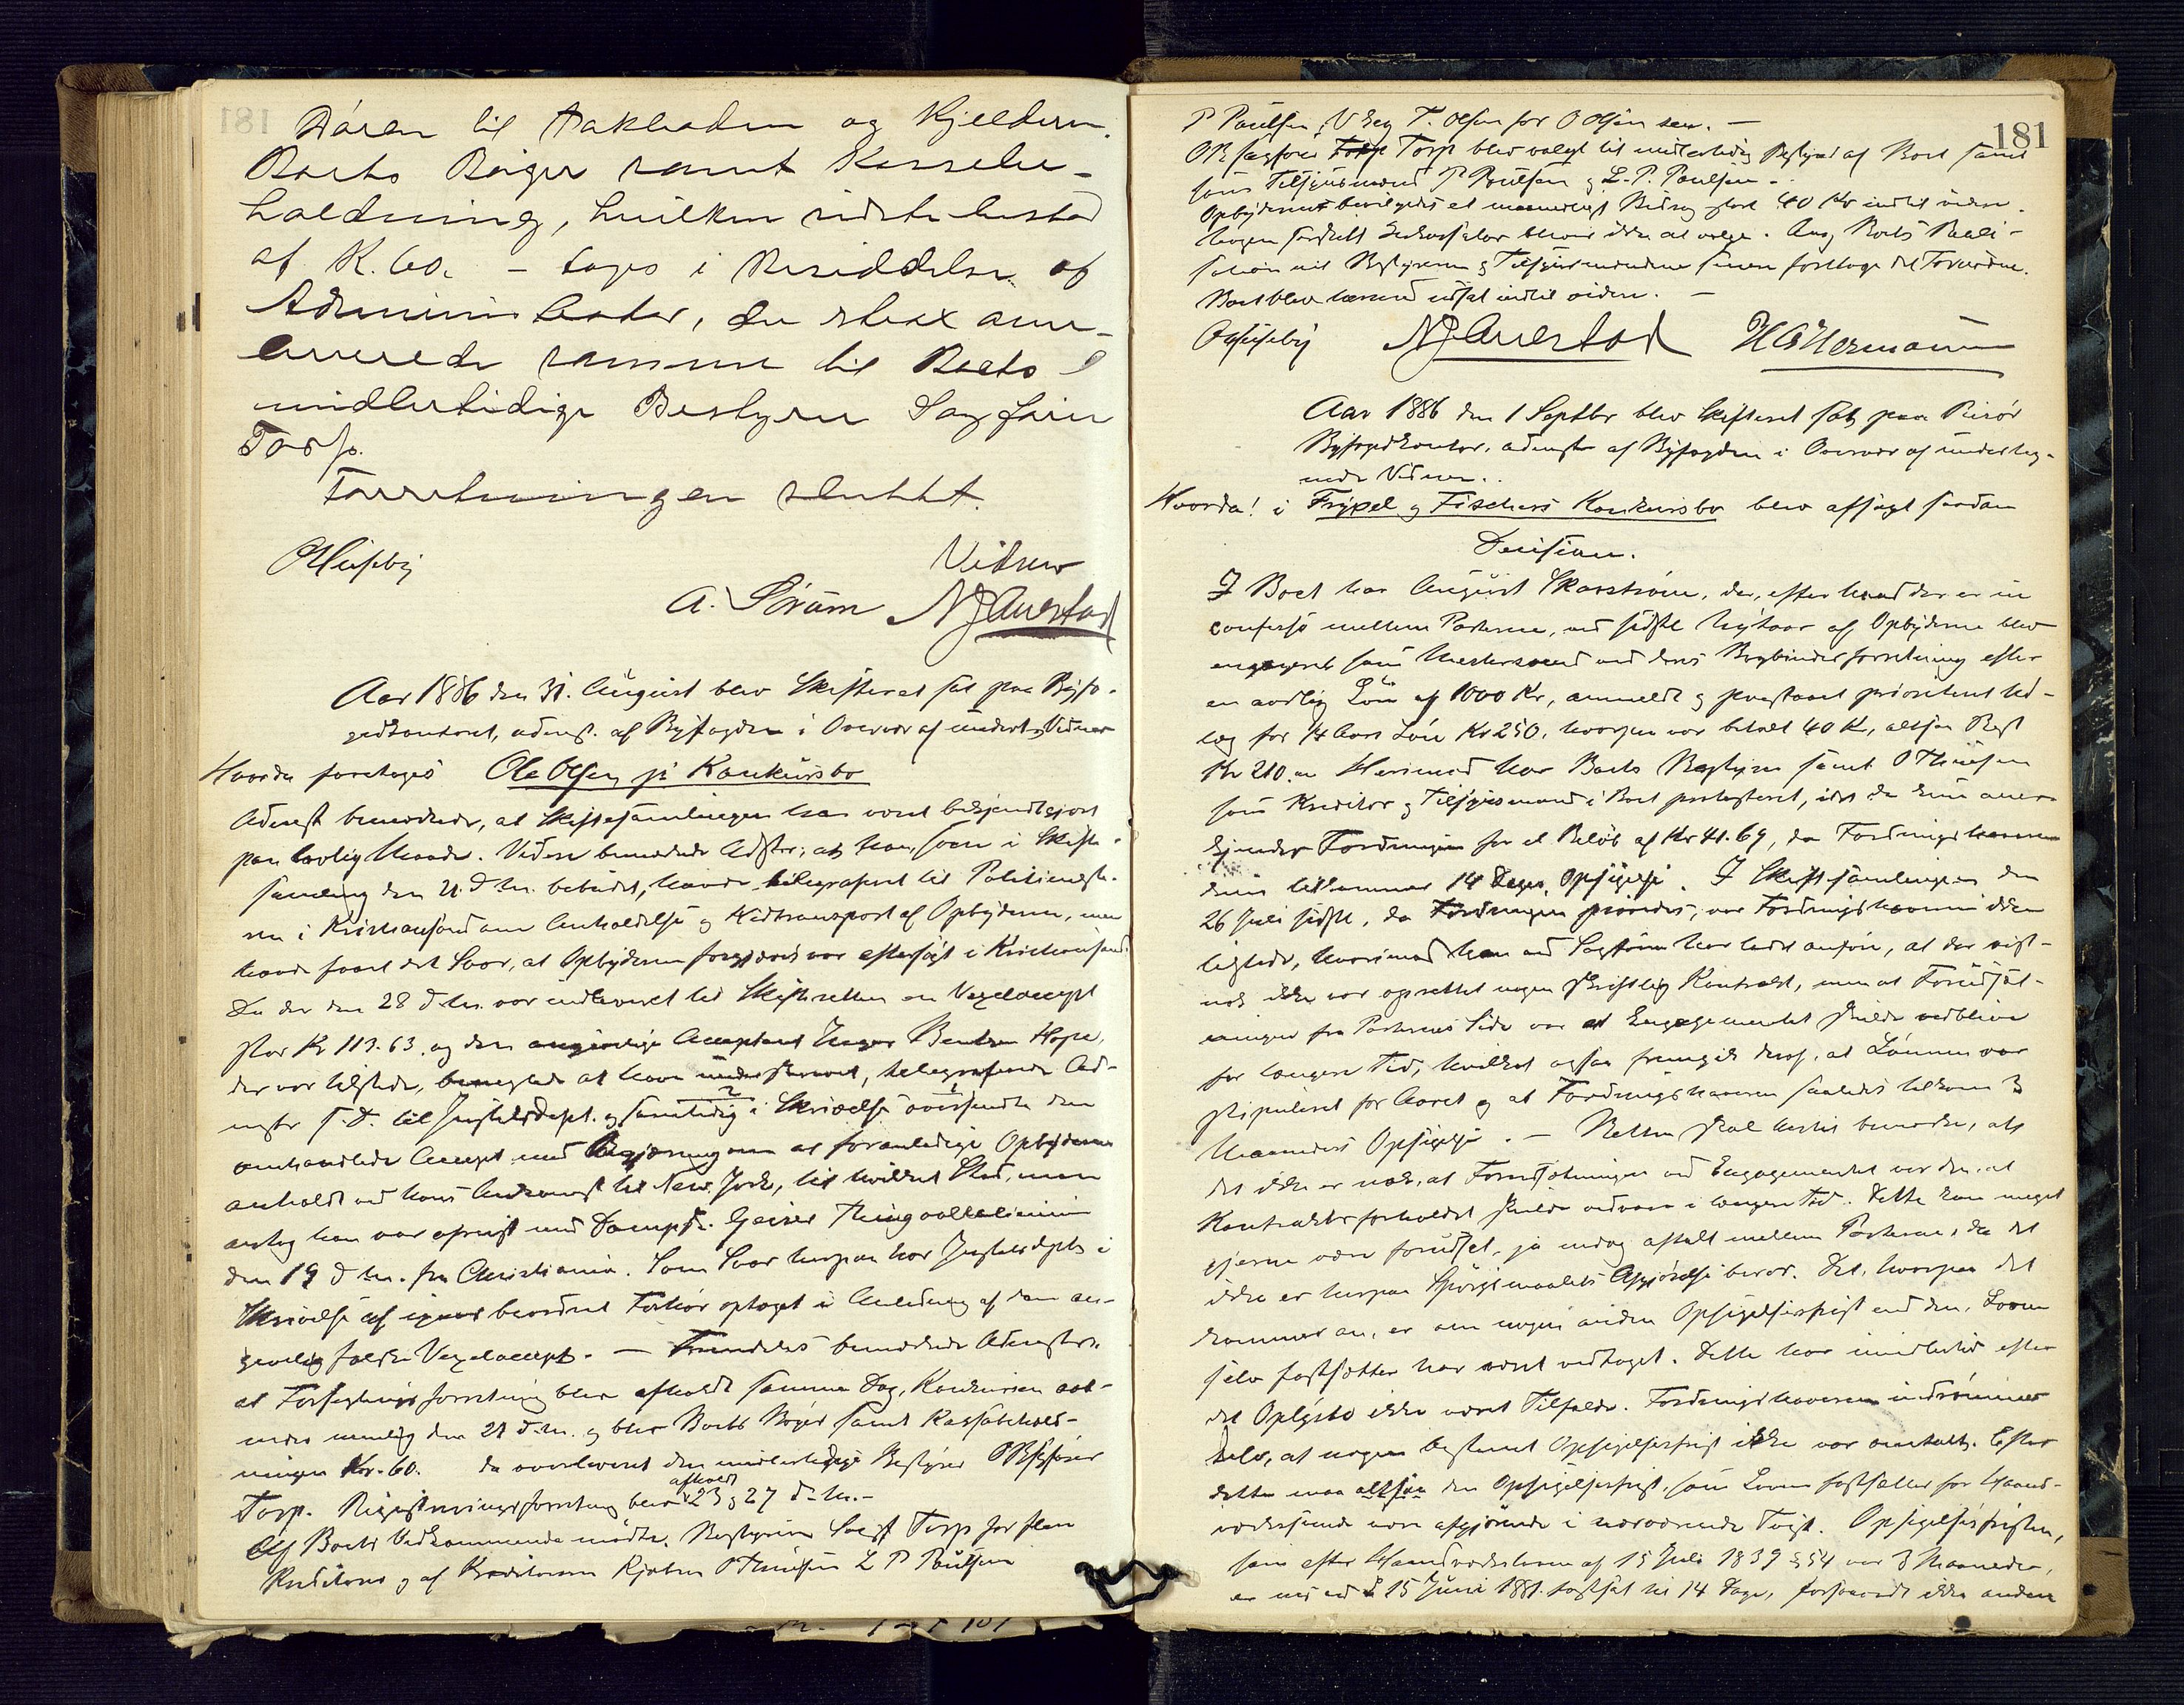 Døren til Trakladen og Kjelderen.
Boets Bøger samt Kassebe-
holdning, hvilken sidste bestod
af K. 60. – toges i Besiddelse af
Administrator, der strax over-
leverede samme til Boets
midlertidige Bestyrer Sagfører
Torp.
Forretningen sluttet.
OHuseby Vidner
A. Sørum NJAuestad
Aar 1886 den 31. August blev Skifteret sat paa Byfo-
gedkontoret, administ. af Byfogden i Overvær af undert. Vidner
Hvorda foretoges Ole Olsen jr Konkursbo
Administ bemærkede, at Skiftesamlingen har været bekjendtgjort
paa lovlig Maade. Videre bemærkede Adstr., at han, som i Skifte-
samling den 21. d M. bebudet, havde telegraferet til Politimeste-
ren i Kristiansand om Anholdelse og Nedtransport af Opbyderen, men
havde faaet det Svar, at Opbyderen forgjæves var eftersøgt i Kristiansand.
Da der den 28 d M. var indleveret til Skifteretten en Vexelaccept
stor Kr 113.63. og den angivelige Acceptant Bentsen Hope,
der var tilstede, benegtede at have underskrevet, telegraferede Ad-
mstr s. D. til Justitsdept. og samtidig i Skrivelse oversendte den
omhandlede Accept med Begjæring om at foranledige Opbyderen
anholdt ved hans Ankomst til New York, til hvilket Sted, man
antog han var afreist med Dampsk. Geiser Thingvallalinien
den 19 d M. fra Christiania. Som Svar herpaa har Justitsdepts i
Skrivelse af igaar beordret Forhør optaget i Anledning af den an-
givelig falske Vexelaccept. — Fremdeles bemærkede Admstr.
at Forseglingsforretning blev afholdt samme Dag, Konkursen aab-
nedes nemlig den 21 d. M. og blev Boets Bøger samt Kassabehold-
ningen Kr. 60. da overleveret den midlertidige Bestyrer ORSagfører
afholdt
Torp. Registreringsforretning blev 23 og 27 d. M.–
Af Boets Vedkommende mødte. Bestyreren Sagf Torp for flere
Kreditorer og af Kreditorerne Kjøbm O Thuesen L P Poulsen
181
P Poulsen, T. Olsen for O Olsen sen. –
OR sagfører Torp blev valgt til midlertidig Bestyrer af Boet samt
som Tilsynsmænd P Poulsen og L. P. Poulsen –
Opbyderens bevilgedes et maanedligt Bidrag stort 40 Kr indtil videre.
Nogen særskilt Inkassator blev ikke at vælge. Ang Boets Reali-
sation vil Bestyreren og Tilsynsmændene senere foretage det Fornødne.
Boet blev hermed udsat indtil videre. –
OHuseby NJAuestad HGHermann
Aar 1886 den 1 Septbr blev Skifteret sat paa Risør
Byfogedkontor, administ af Byfogden i Overvær af underteg-
nede Vidner..
Hvorda! i Frÿpel og Fischers Konkursbo blev afsagt saadan
Decision.
I Boet har August Skarstrøm, der, efter hvad der er in
confesso mellem Parterne, ved sidste Nytaar af Opbyderne blev
engageret som Mestersvend ved deres Bogbinderforretning efter
en aarlig Løn af 1000 Kr, anmeldt og paastaaet prioriteret Ud-
læg for ¼ Aars Løn Kr 250. hvorpaa var betalt 40 K, altsaa Rest
Kr 210. Herimod har Boets Bestyrer samt O Thuesen
som Kreditor og Tilsynsmand i Boet protesteret, idet de kun aner-
kjender Fordringen for et Beløb af Kr 41.69, da Fordringshaveren
kun tilkommer 14 Dages Opsigelse. I Skiftesamlingen den
26 Juli sidstl., da Fordringen prøvedes, var Fordringshaveren ikke
tilstede, hvorimod han ved Sagfører har ladet anføre, at der vist-
nok ikke var oprettet nogen skriftlig Kontrakt, men at Forudsæt-
ningen fra Parternes Side var at Engagementet skulde vedblive
for længere Tid, hvilket ogsaa fremgik deraf, at Lønnen var
stipuleret for Aaret og at Fordringshaveren saaledes tilkom 3
Maaneders Opsigelse. – Retten skal hertil bemærke, at
det ikke er nok, at Forudsætningen ved Engagementet var den, at
Kontraktsforholdet skulde vedvare i længere Tid. Dette kan meget
gjerne være forudsat, ja endog aftalt mellem Parterne, da det
ikke er herpaa Spørgsmaalets Afgjørelse beror. Det, hvorpaa det
kommer an, er om nogen anden Opsigelsesfrist end den, Loven
selv fastsætter har været vedtaget. Dette har imidlertid efter
det Oplyste ikke været Tilfælde. Fordringshaveren indrømmer
selv, at nogen bestemt Opsigelsesfrist ikke var omtalt. Efter
dette maa altsaa den Opsigelsesfrist, som Loven fastsætter for Haand-
værkssvende være afgjørende i nærværende Tvist. Opsigelsesfristen,
som efter Haandværksloven af 15 Juli 1839 § 54 var 3 Maaneder,
er nu ved L 15 Juni 1881. fastsat til 14 Dage, forsaavidt ikke anden